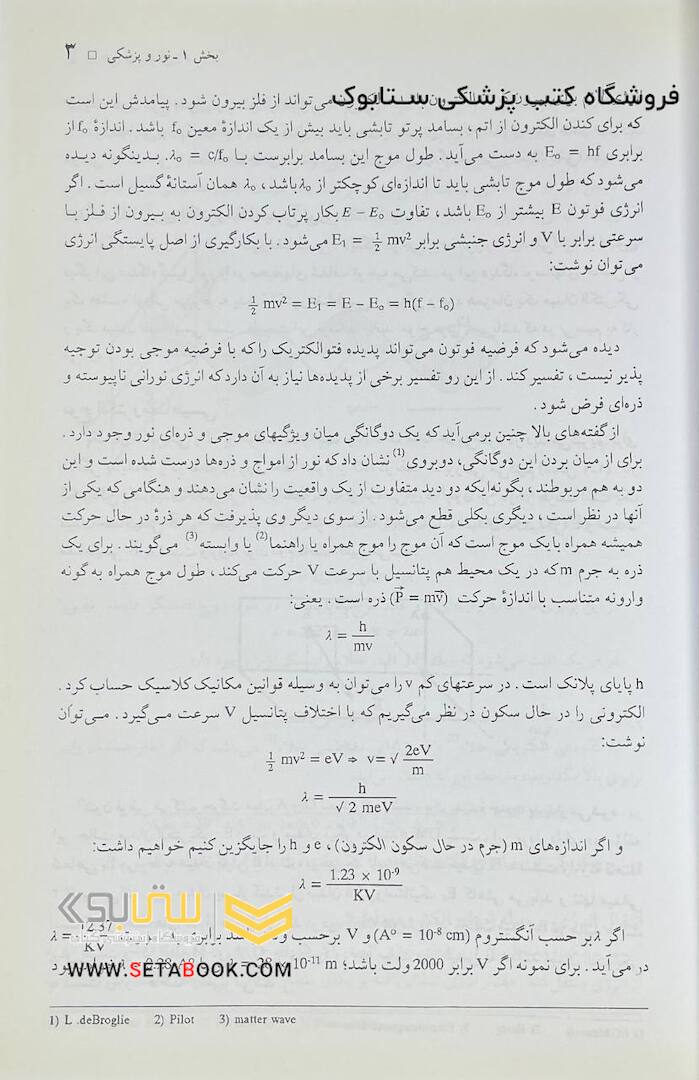 بخش ۱ ـ نور و پزشکی □ ۳
فروشگاه کتب پزشکی ستابوک
می‌تواند از فلز بیرون شود . پیامدش این است
که برای کندن الکترون از اتم ، بسامد پرتو تابشی باید بیش از یک اندازهٔ معین f₀ باشد . اندازهٔ f₀ از
برابری E₀ = hf به دست می‌آید . طول موج این بسامد برابرست بـا λ₀ = c/f₀. بـدینگونه دیـده
می‌شود که طول موج تابشی باید تا اندازه‌ای کوچکتر از λ₀ باشد ، λ₀ همان آستانهٔ گسیل است . اگر
انرژی فوتون E بیشتر از E₀ باشد ، تفاوت E − E₀ بکار پرتاب کردن الکترون به بـیرون از فـلز بـا
سرعتی برابر با V و انرژی جنبشی برابر E₁ = ½ mv² می‌شود . با بکارگیری از اصل پایستگی انرژی
می‌توان نوشت:
½ mv² = E₁ = E − E₀ = h(f − f₀)
دیده می‌شود که فرضیه فوتون می‌تواند پدیده فتوالکتریک را که با فرضیه موجی بودن توجیه
پذیر نیست ، تفسیر کند . از این رو تفسیر برخی از پدیده‌ها نیاز به آن دارد که انرژی نورانی ناپیوسته و
ذره‌ای فرض شود .
از گفته‌های بالا چنین برمی‌آید که یک دوگانگی میان ویژگیهای موجی و ذره‌ای نور وجود دارد .
برای از میان بردن این دوگانگی، دوبروی(1) نشان داد که نور از امواج و ذره‌ها درست شده است و این
دو به هم مربوطند ، بگونه‌ایکه دو دید متفاوت از یک واقعیت را نشان می‌دهند و هنگامی که یکی از
آنها در نظر است ، دیگری بکلی قطع می‌شود . از سوی دیگر وی پذیرفت که هر ذرهٔ در حال حرکت
همیشه همراه با یک موج است که آن موج را موج همراه یا راهنما(2) یا وابسته(3) می‌گویند . برای یک
ذره به جرم m که در یک محیط هم پتانسیل با سرعت V حرکت می‌کند ، طول موج همراه به گونه
وارونه متناسب با اندازهٔ حرکت (P⃗ = mv⃗) ذره است . یعنی:
λ = h / mv
h پایای پلانک است . در سرعتهای کم v را می‌توان به وسیله قوانین مکانیک کلاسیک حساب کرد .
الکترونی را در حال سکون در نظر می‌گیریم که با اختلاف پتانسیل V سرعت مـی‌گیرد . مـی‌توان
نوشت:
½ mv² = eV ⇒ v= √ 2eV / m
λ = h / √ 2 meV
و اگر اندازه‌های m (جرم در حال سکون الکترون) ، e و h را جایگزین کنیم خواهیم داشت:
λ = 1.23 × 10⁻⁹ / KV
ستابوک
اگر λ بر حسب آنگستروم (A° = 10⁻⁸ cm) و V برحسب λ = 12.37 / KV
در می‌آید . برای نمونه اگر V برابر 2000 ولت باشد؛ 10⁻¹¹ m
WWW.SETABOOK.COM
1) L .deBroglie 2) Pilot 3) matter wave